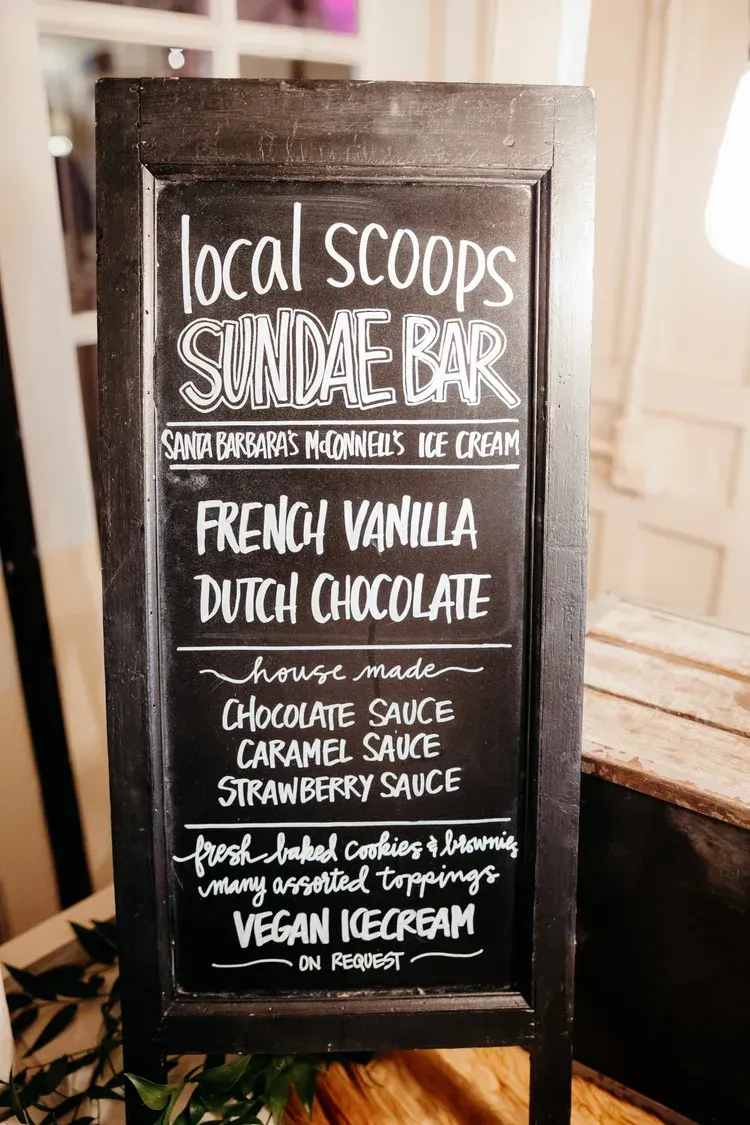 local SCOOPS
SUNDAE BAR
SANTA BARBARA'S McCONNELL'S ICE CREAM
FRENCH VANILLA
DUTCH CHOCOLATE
house made
CHOCOLATE SAUCE
CARAMEL SAUCE
STRAWBERRY SAUCE
fresh baked cookies & brownies
many assorted toppings
VEGAN ICECREAM
ON REQUEST